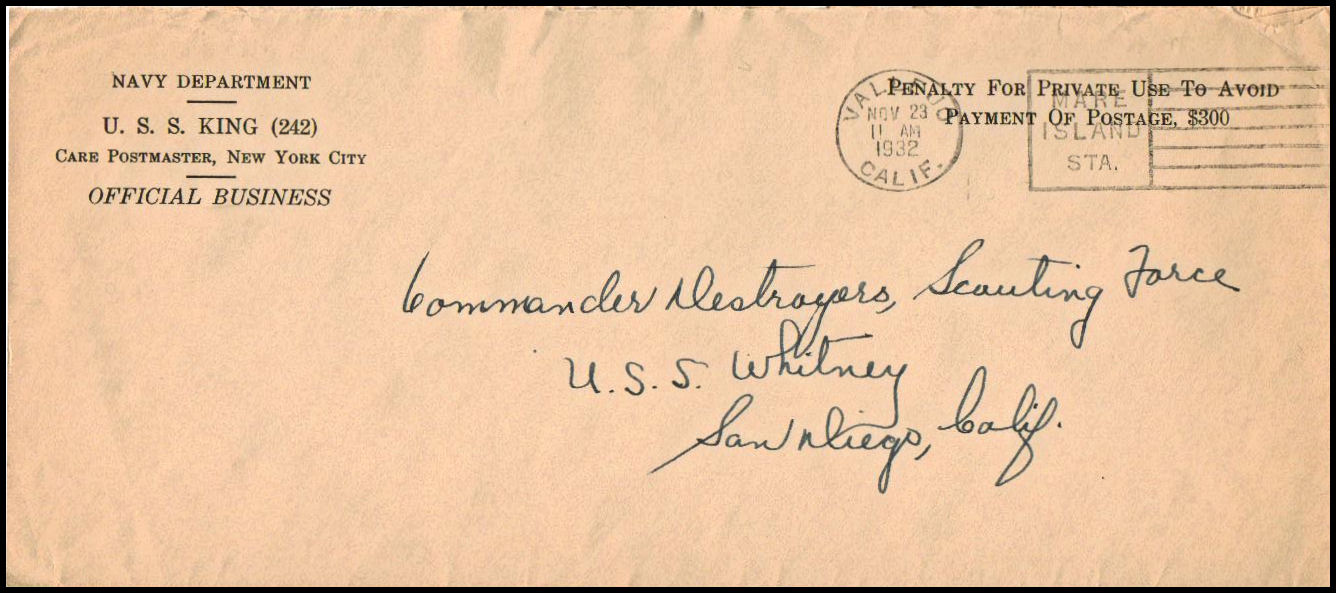 NAVY DEPARTMENT
U. S. S. KING (242)
CARE POSTMASTER, NEW YORK CITY
OFFICIAL BUSINESS
PENALTY FOR PRIVATE USE TO AVOID
PAYMENT OF POSTAGE, $300
VALLEJO
NOV 23
11 AM
1932
CALIF.
MARE
ISLAND
STA.
Commander Destroyers, Scouting Force
U.S.S. Whitney
San Diego, Calif.